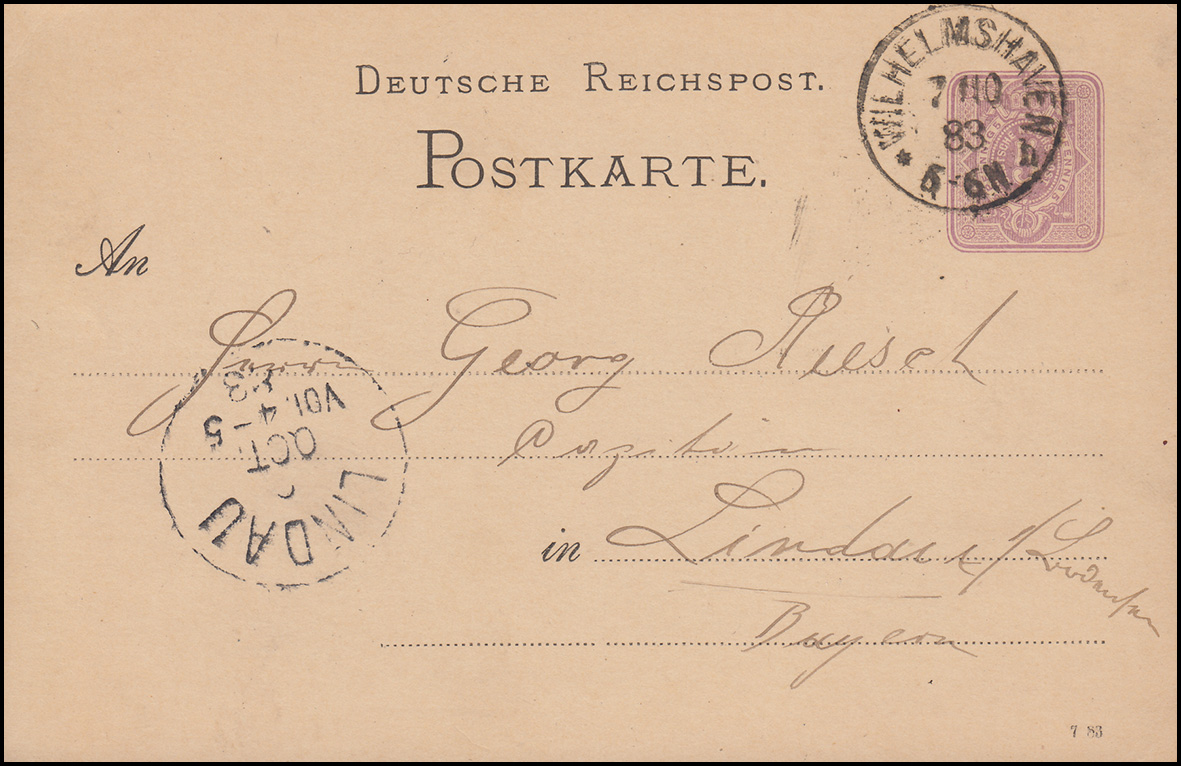 DEUTSCHE REICHSPOST.
POSTKARTE.
WILHELMSHAVEN
7 10
83
5-6N
An
Herrn Georg
in Lindau
Bayern
LINDAU
OCT
4-5
83
7 83